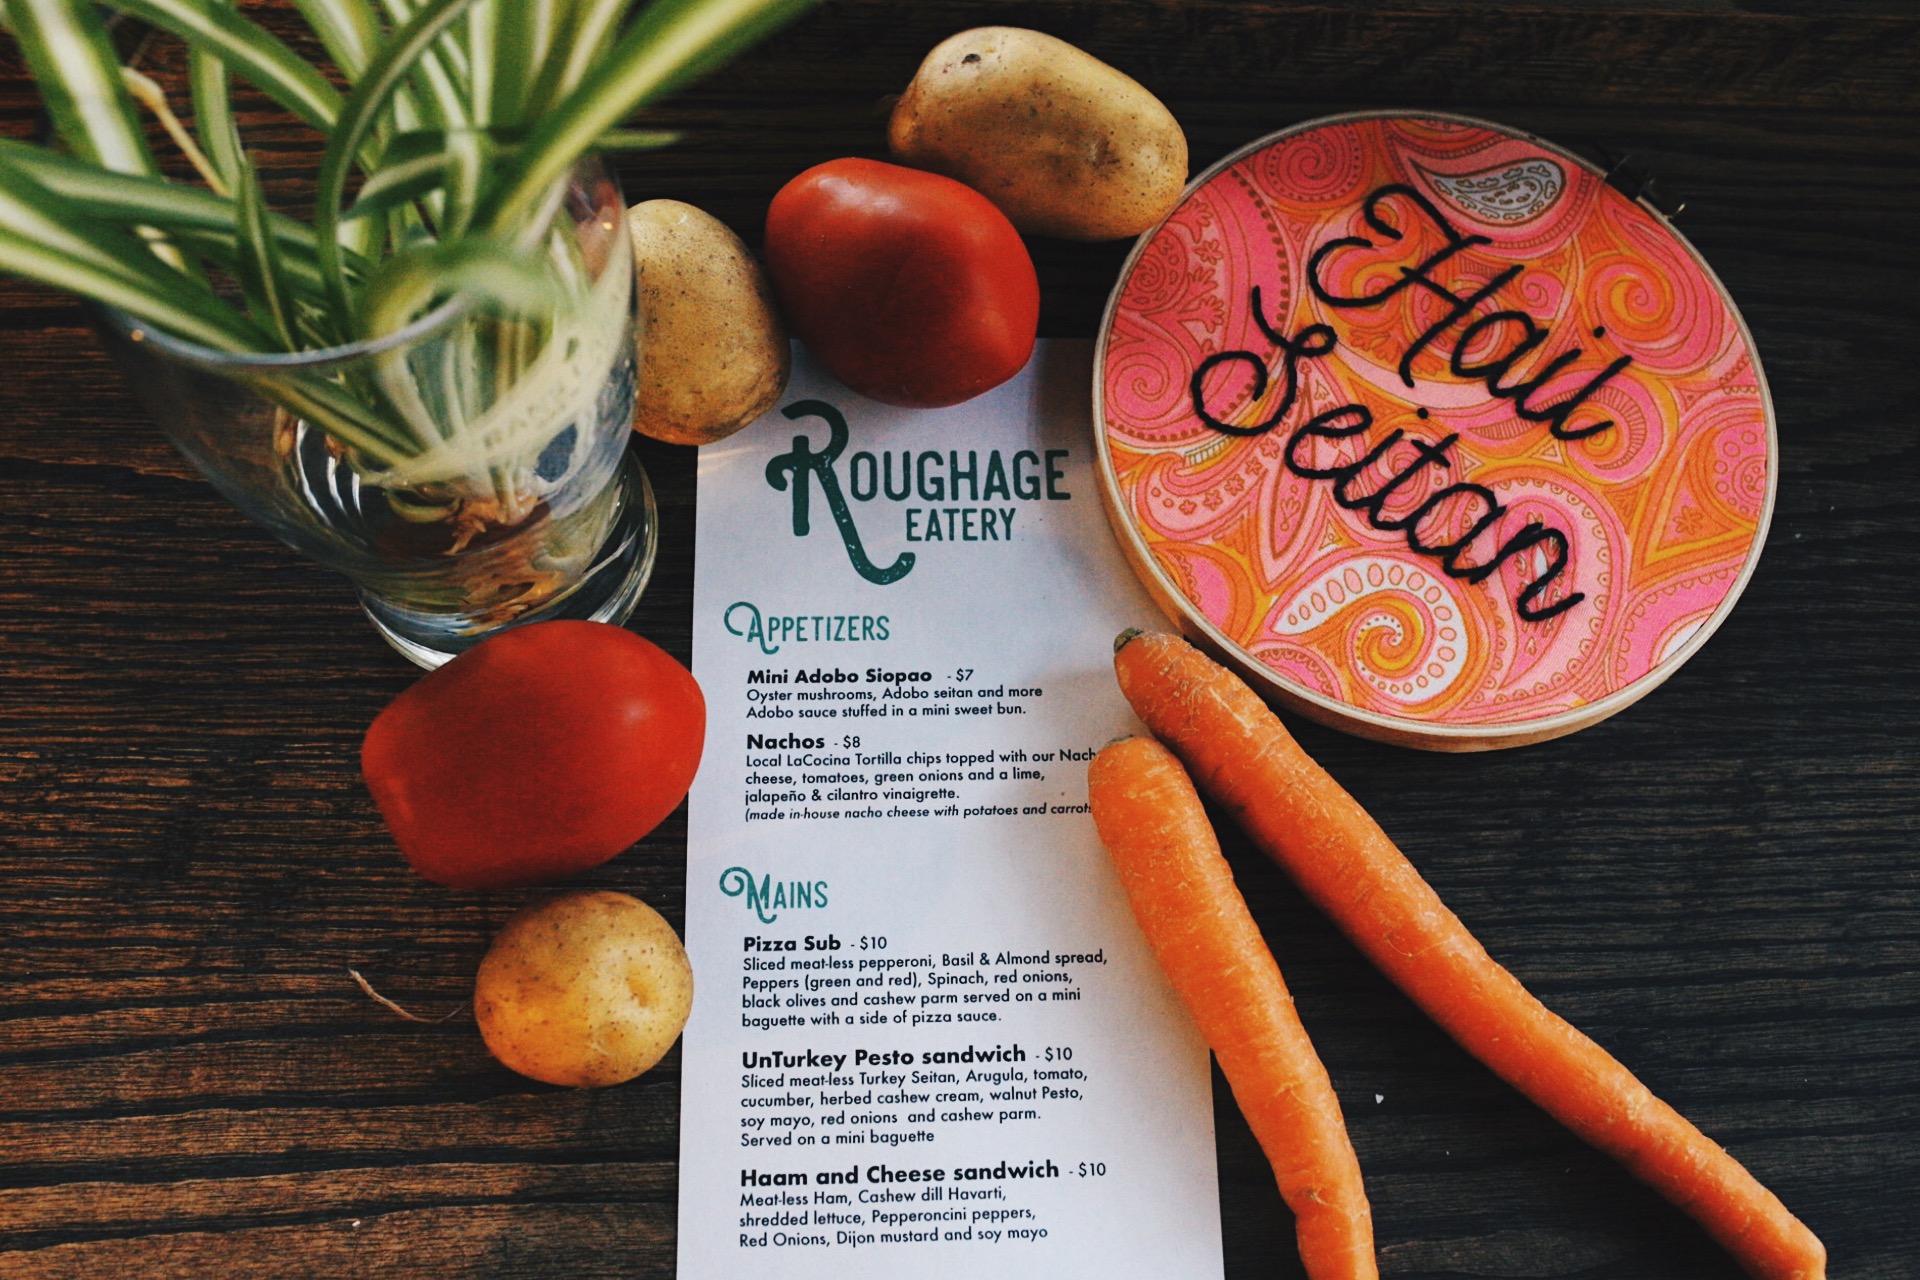 Hail
Seitan
ROUGHAGE
EATERY
APPETIZERS
Mini Adobo Siopao - $7
Oyster mushrooms, Adobo seitan and more
Adobo sauce stuffed in a mini sweet bun.
Nachos - $8
Local LaCocina Tortilla chips topped with our Nach
cheese, tomatoes, green onions and a lime,
jalapeño & cilantro vinaigrette.
(made in-house nacho cheese with potatoes and carrots
MAINS
Pizza Sub - $10
Sliced meat-less pepperoni, Basil & Almond spread,
Peppers (green and red), Spinach, red onions,
black olives and cashew parm served on a mini
baguette with a side of pizza sauce.
UnTurkey Pesto sandwich - $10
Sliced meat-less Turkey Seitan, Arugula, tomato,
cucumber, herbed cashew cream, walnut Pesto,
soy mayo, red onions and cashew parm.
Served on a mini baguette
Haam and Cheese sandwich - $10
Meat-less Ham, Cashew dill Havarti,
shredded lettuce, Pepperoncini peppers,
Red Onions, Dijon mustard and soy mayo